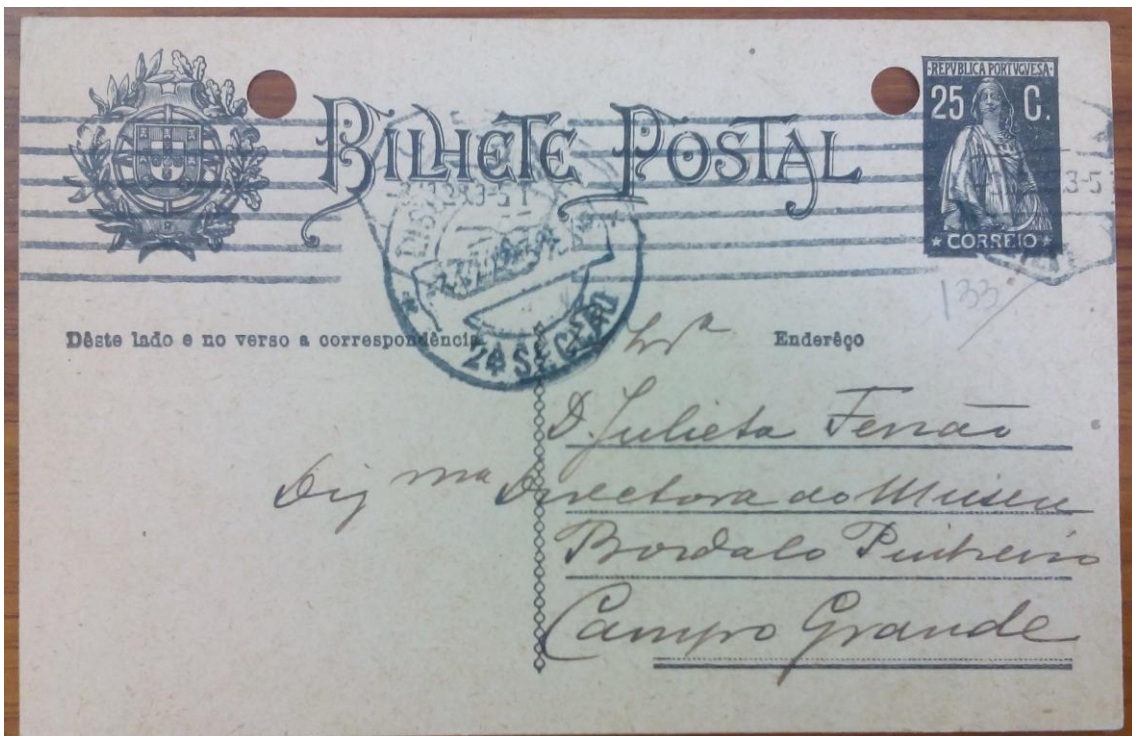 BILHETE POSTAL
REPVBLICA PORTVGVESA
25 C.
CORREIO
3-5
133
2ª SECÇÃO
Dêste lado e no verso a correspondência
Endereço
Srª
D. Julieta Ferrão
Dig ma Directora do Museu
Bordalo Pinheiro
Campo Grande